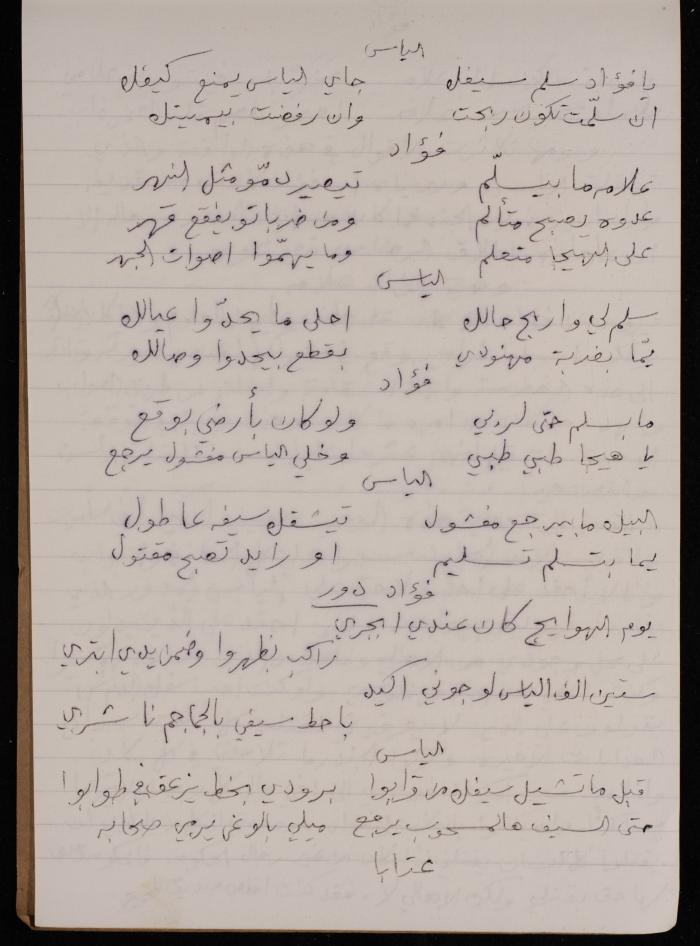 الياس
يا فؤاد سلم سيفك جاي الياس يمنع كيفك
ان سلّمت تكون ربحت وان رفضت بيميتك
فؤاد
علامه ما بيسلّم تيصير دمّو مثل النهر
عدوه يصبح متألم ومن ضرباتو يفقع قهر
على الهيجا متعلم وما يهمّوا اصوات الجهر
الياس
سلم لي واربح حالك احلى ما يحدّوا عيالك
يمّا بضربة مهنودي بقطع بيحدوا وصالك
فؤاد
ما بسلم حتى لربي ولو كان بأرضي بوقع
يا هيجا طبي طبي وخلي الياس مفشول يرجع
الياس
البيك ما بيرجع مفشول تيشقلك سيفه عا طول
يما بتسلم تسليم او رايد تصبح مقتول
فؤاد دور
يوم الهوايج كان عندي ابجري
راكب بظهروا وضمن يدي ابتري
ستين الف الياس لو جوني اكيد
باحط سيفي بالجماجم نا شري
الياس
قبل ما تشيل سيفك من قرابوا برودي بخط يزعق في طوابوا
حتى السيف هالمسحوب يرجع ميلي بالوغى يرمي صحابه
عتابا